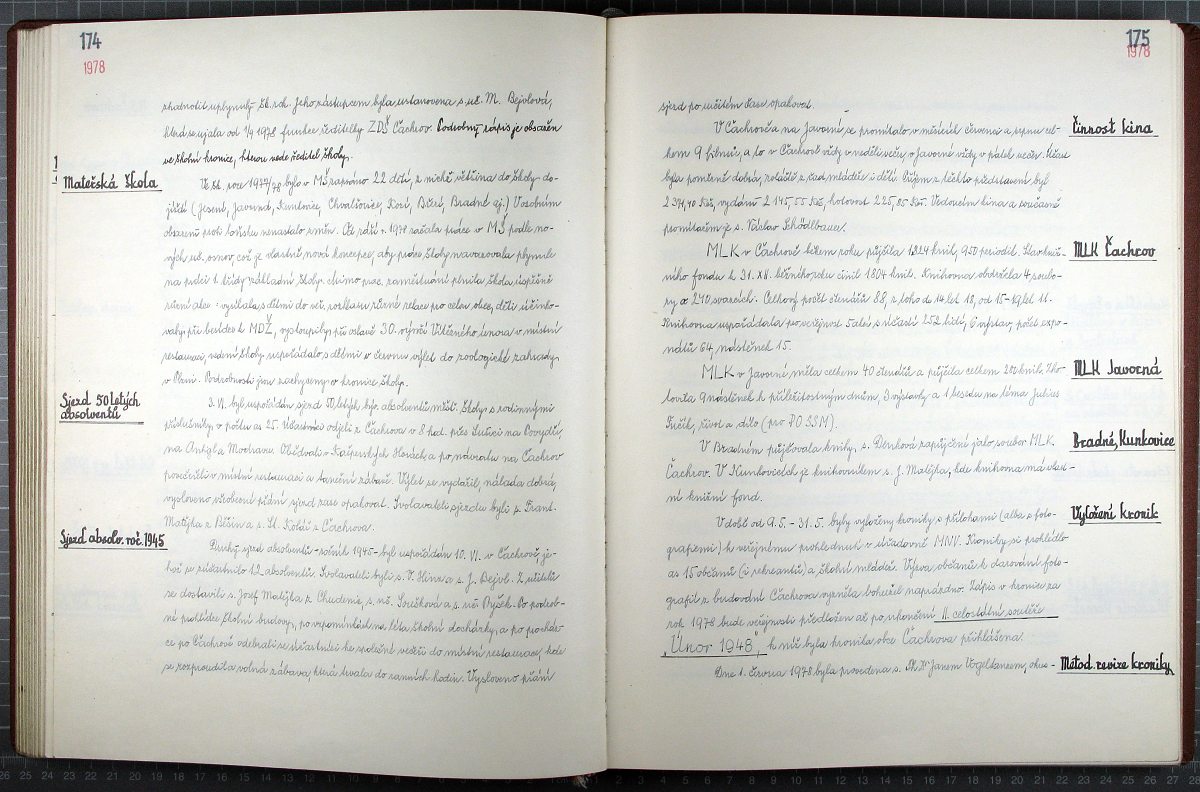 174
1978
zhodnotit uplynulý šk. rok. Jeho zástupcem byla ustanovena s. uč. M. Bejvlová,
která se ujala od 1/9 1978 funkce ředitelky ZDŠ Čachrov. Podrobný zápis je obsažen
ve školní kronice, kterou vede ředitel školy.
Mateřská škola
Ve šk. roce 1977/78 bylo v MŠ zapsáno 22 dětí, z nichž většina do školy do-
jíždí (Jesení, Javorná, Kunkovice, Chvalšovice, Kozí, Bradné aj.) V osobním
obsazení proti loňsku nenastalo změn. Od září r. 1978 začala práce v MŠ podle no-
vých uč. osnov, což je vlastně nová koncepce, aby práce školy navazovala plynule
na práci 1. třídy základní školy. Mimo prac. zaměstnání plnila škola úspěšně
různé akce: vysílala s dětmi do míst. rozhlasu různé relace pro celou obec, děti účinko-
valy při besídce k MDŽ, vystoupily při oslavě 30. výročí Vítězného února v místní
restauraci, vedení školy uspořádalo s dětmi v červnu výlet do zoologické zahrady
v Plzni. Podrobnosti jsou zachyceny v kronice školy.
Sjezd 50 letých
absolventů
3. VI. byl uspořádán sjezd 50 letých býv. absolventů měšť. školy s rodinnými
příslušníky v počtu as 25. Účastníci odjeli z Čachrova v 8 hod. přes Sušici na Povydří,
na Antýgl a Modravu. Obědvali v Kašperských Horách a po návratu na Čachrov
povečeřeli v místní restauraci a taneční zábavě. Výlet se vydařil, nálada dobrá,
vysloveno všeobecné přání sjezd zase opakovat. Svolavateli sjezdu byli s. Frant.
Matějka z Běšin a s. St. Kolář z Čachrova.
Sjezd absolv. roč. 1945
Druhý sjezd absolventů - ročník 1945 - byl uspořádán 10. VI. v Čachrově, je-
hož se zúčastnilo 12 absolventů. Svolavateli byli s. V. Hinz a s. J. Bejvl. Z učitelů
se dostavili s. Josef Matějka z Chudenic, s. uč. Soušková a s. uč. Ryšek. Po podrob-
né prohlídce školní budovy, po vzpomínkách na léta školní docházky, a po pochůz-
ce po Čachrově odebrali se účastníci ke společné večeři do místní restaurace, kde
se rozproudila volná zábava, která trvala do ranních hodin. Vysloveno přání
175
1978
sjezd po určitém čase opakovat.
Činnost kina
V Čachrově a na Javorné se promítalo v měsících červenci a srpnu cel-
kem 9 filmů, a to v Čachrově vždy v neděli večer, v Javorné vždy v pátek večer. Účast
byla poměrně dobrá, zvláště z řad mládeže i dětí. Příjem z těchto představení byl
2 371,40 Kčs, vydání 2 145,55 Kčs, hotovost 225,85 Kčs. Vedoucím kina a současně
promítačem je s. Václav Schödlbauer.
MLK Čachrov
MLK v Čachrově během roku půjčila 1224 knih, 950 periodik. Stav kniž-
ního fondu k 31. XII. běžného roku činil 1804 knih. Knihovna obdržela 4 soubo-
ry o 240 svazcích. Celkový počet čtenářů 88, z toho do 14 let 18, od 15-19 let 11.
Knihovna uspořádala pro veřejnost 5 akcí s účastí 252 lidí, 6 výstav, počet expo-
nátů 64, nástěnek 15.
MLK Javorná
MLK v Javorné měla celkem 40 čtenářů a půjčila celkem 200 knih. Zho-
tovila 9 nástěnek k příležitostným dnům, 3 výstavky a 1 besedu na téma Julius
Fučík, život a dílo (pro PO SSM).
Bradné, Kunkovice
V Bradném půjčovala knihy s. Denková zapůjčené jako soubor MLK
Čachrov. V Kunkovicích je knihovníkem s. J. Matějka, kde knihovna má vlast-
ní knižní fond.
Vyložení kronik
V době od 9.5. - 31.5. byly vyloženy kroniky s přílohami (alba s foto-
grafiemi) k veřejnému prohlédnutí v úřadovně MNV. Kroniky si prohlédlo
as 15 občanů (i rekreantů) a školní mládež. Výzva občanům k darování foto-
grafií z budování Čachrova vyzněla bohužel naprázdno. Zápis v kronice za
rok 1978 bude veřejnosti předložen až po ukončení II. celostátní soutěže
"Únor 1948", k níž byla kronika obce Čachrova přihlášena.
Metod. revize kroniky
Dne 1. června 1978 byla provedena s. Janem Vogeltanzem, okres-